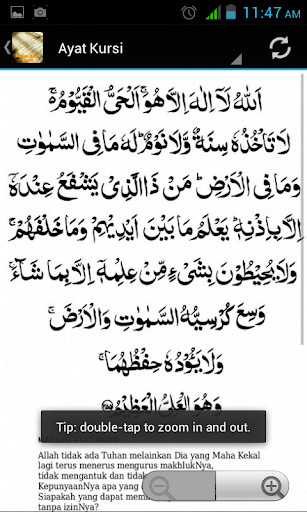 11:47 AM
Ayat Kursi
اَللّٰهُ لَآ اِلٰهَ اِلَّا هُوَ ۚ اَلْحَيُّ الْقَيُّوْمُ ۚ
لَا تَأْخُذُهٗ سِنَةٌ وَّلَا نَوْمٌ ؕ لَهٗ مَا فِى السَّمٰوٰتِ
وَمَا فِى الْاَرْضِ ؕ مَنْ ذَا الَّذِىْ يَشْفَعُ عِنْدَهٗٓ
اِلَّا بِاِذْنِهٖ ؕ يَعْلَمُ مَا بَيْنَ اَيْدِيْهِمْ وَمَا خَلْفَهُمْ ۚ
وَلَا يُحِيْطُوْنَ بِشَىْءٍ مِّنْ عِلْمِهٖٓ اِلَّا بِمَا شَآءَ ۚ
وَسِعَ كُرْسِيُّهُ السَّمٰوٰتِ وَالْاَرْضَ ۚ
وَلَا يَـُٔوْدُهٗ حِفْظُهُمَا ۚ
وَهُوَ الْعَلِىُّ الْعَظِيْمُ
Tip: double-tap to zoom in and out.
Allah tidak ada Tuhan melainkan Dia yang Maha Kekal
lagi terus menerus mengurus makhlukNya,
tidak mengantuk dan tidak
KepunyaanNya apa yang
Siapakah yang dapat
tanpa izinNya?